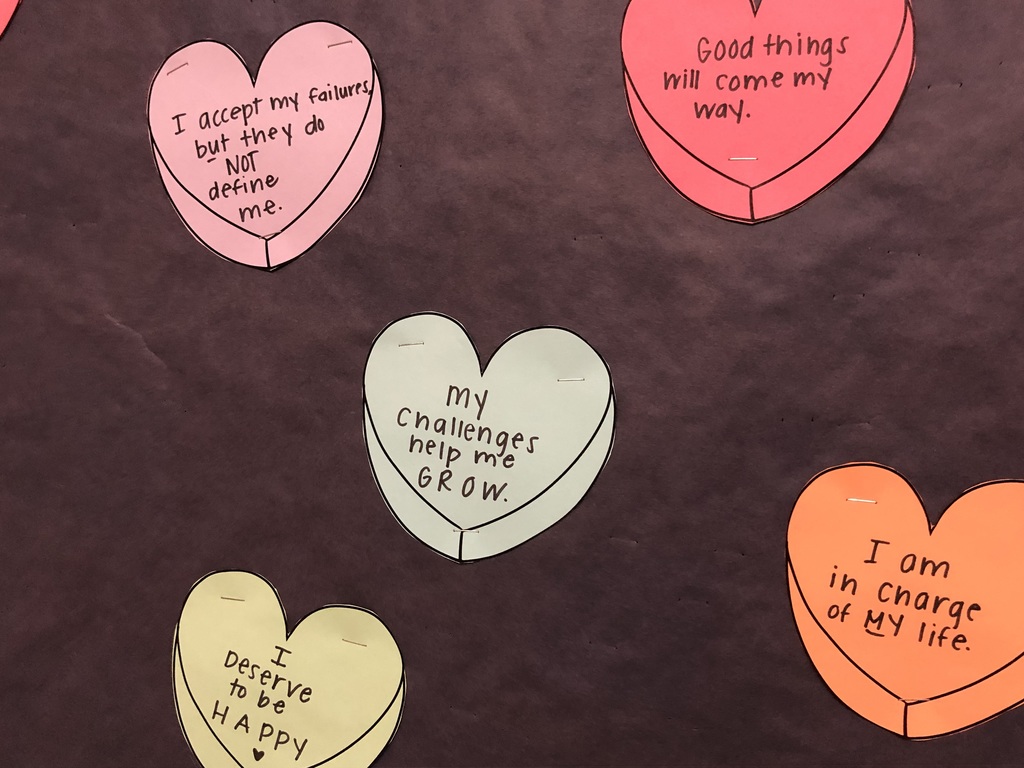 I accept my failures,
but they do
NOT
define
me.
Good things
will come my
way.
My
challenges
help me
GROW.
I am
in charge
of MY life.
I
Deserve
to be
HAPPY